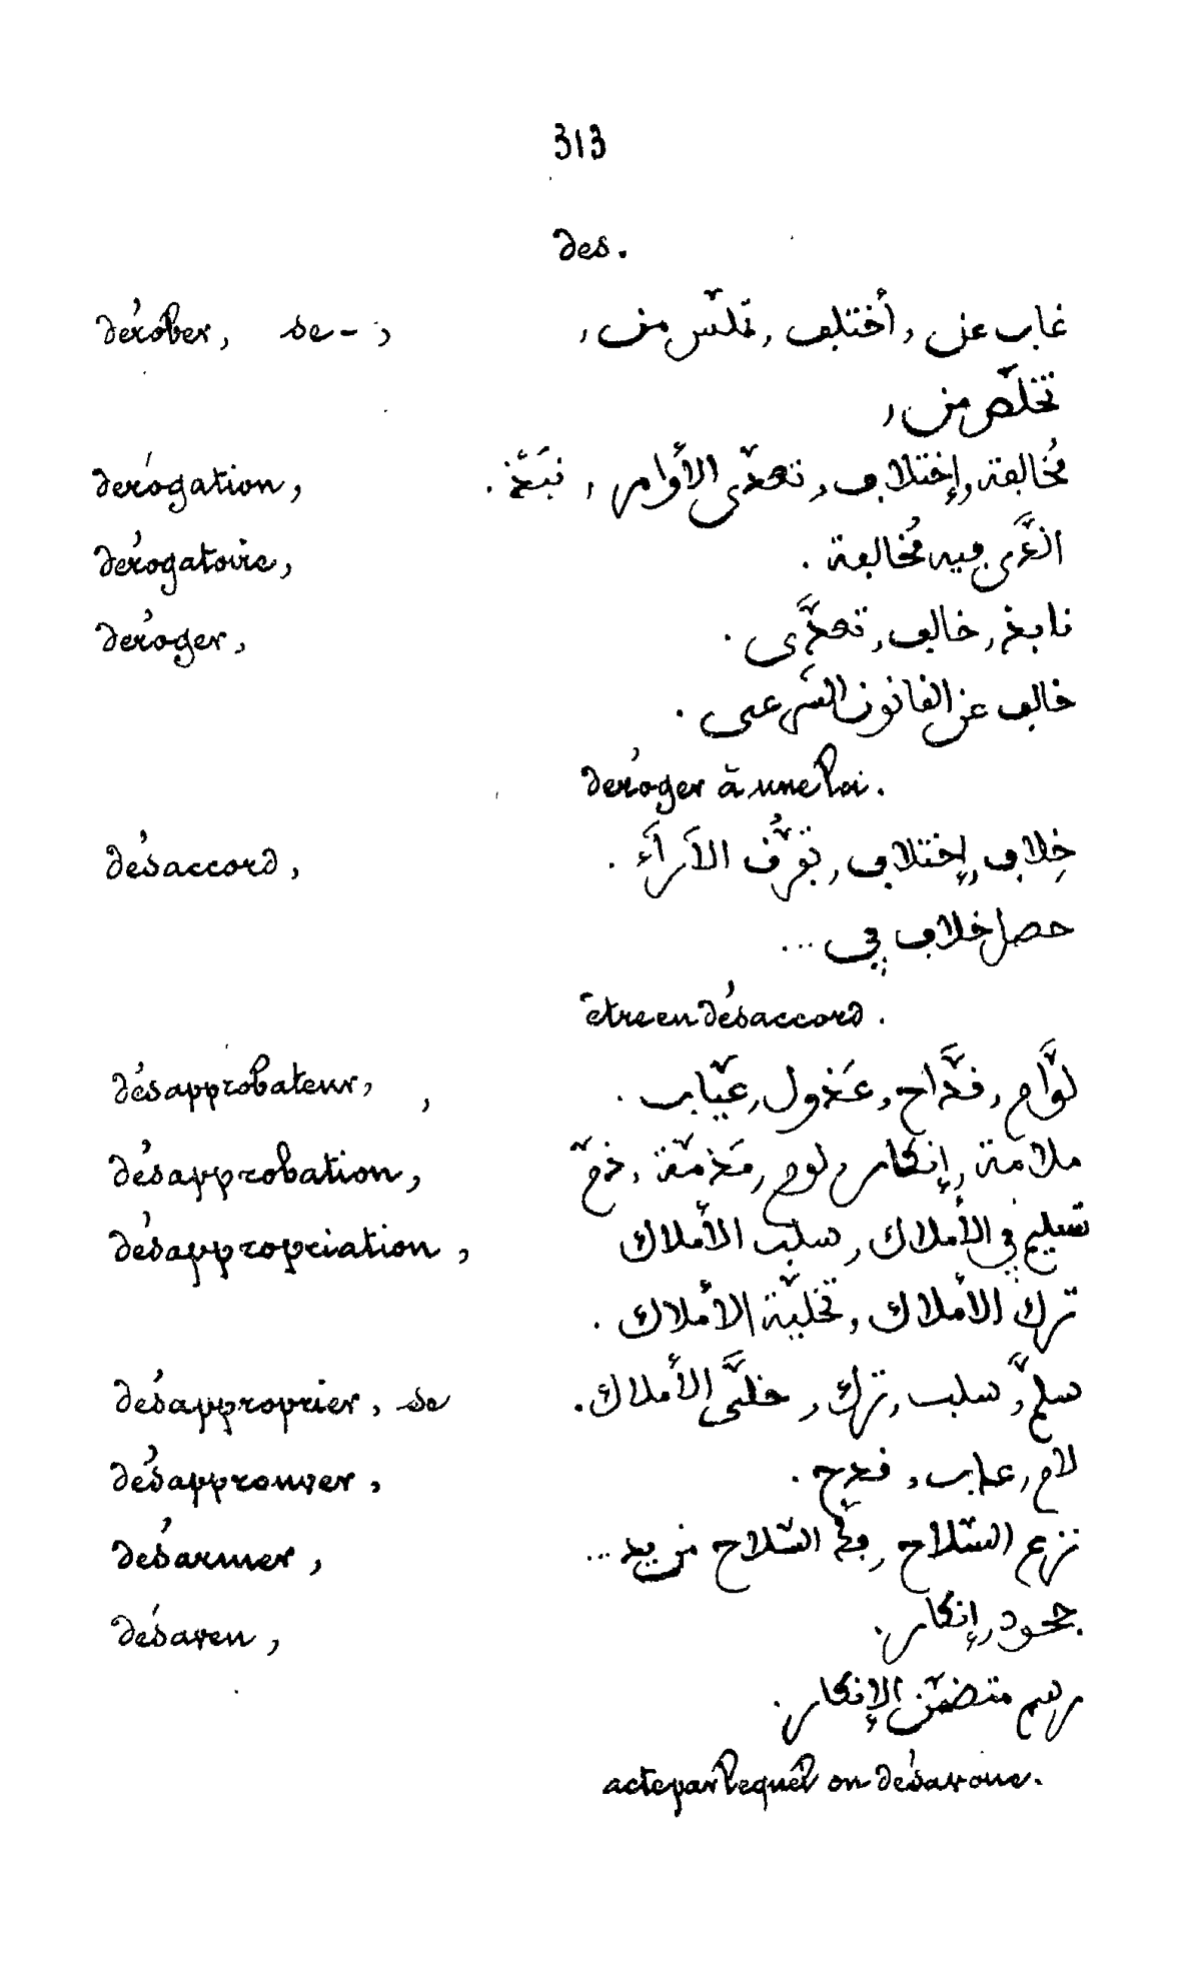 313
des.
dérober, se-; غاب عن, أختلف, تملّس من,
تخلّص من,
dérogation, مُخالفة, إختلاف, تعدّى الأوامر, نَبَذَ.
dérogatoire, الذَّى فيه مُخالفة.
déroger, نابذ, خالف, تعدَّى.
خالف عن القانون الشرعى.
déroger à une loi.
désaccord, خِلاف, إختلاف, تفرُّق الآرَآء.
حصل خلاف في ...
être en désaccord.
désapprobateur, لوَّام, قدَّاح, عَذول, عيّاب.
désapprobation, ملامة, إنكار, لوم, مَذمّة, ذمّ
désappropriation, تسليم في الأملاك, سلب الأملاك
ترك الأملاك, تخليّة الأملاك.
désapproprier, se سلَّم, سلب, ترك, خلَّى الأملاك.
désapprouver, لام, عاب, قدح.
désarmer, نزع السّلاح, السّلاح من يد ...
désaveu, جحود, إنكار.
رسم متضمّن الإنكار.
acte par lequel on désavoue.